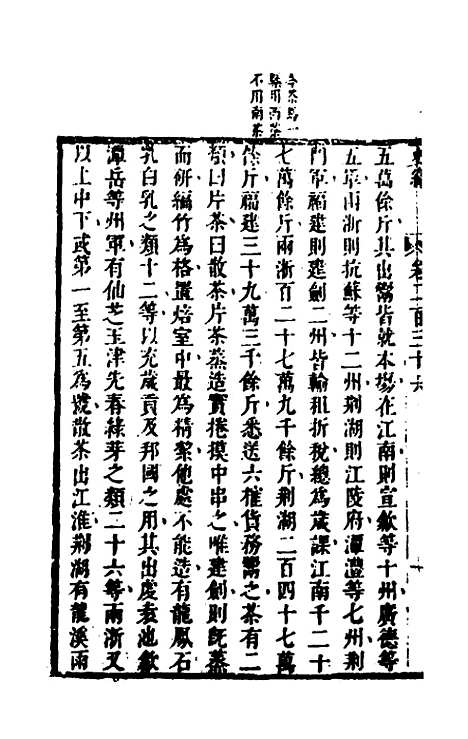 今茶爲一
縣用西茶
不用南茶
卷二百三十六
五萬餘斤其出鬻皆就本場在江南則宣歙等十州廣德等
五軍兩浙則杭蘇等十二州荆湖則江陵府潭澧等七州荆
門軍福建則建劍二州皆輸租折稅總爲歲課江南千二十
七萬餘斤兩浙百二十七萬九千餘斤荆湖二百四十七萬
餘斤福建三十九萬三千餘斤悉送六榷貨務鬻之茶有二
類曰片茶曰散茶片茶蒸造實捲摸中串之唯建劍則旣蒸
而研編竹爲格置焙室中最爲精絜他處不能造有龍鳳石
乳白乳之類十二等以充歲貢及邦國之用其出虔袁池歙
潭岳等州軍有仙芝玉津先春綠芽之類二十六等兩浙又
以上中下或第一至第五爲號散茶出江淮荆湖有龍溪雨